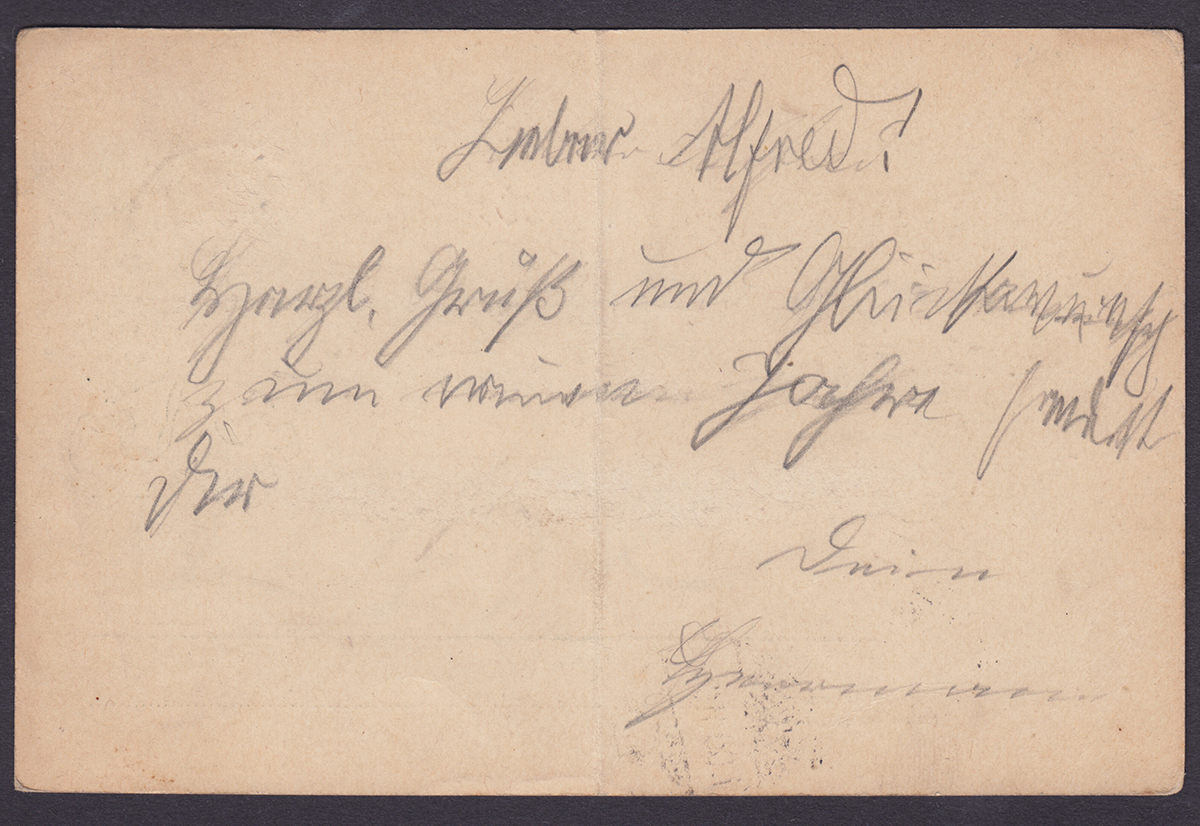 Lieber Alfred!
Herzl. Gruß und Glückwunsch
zum neuen Jahre sendet
Dir
Dein
Hermann